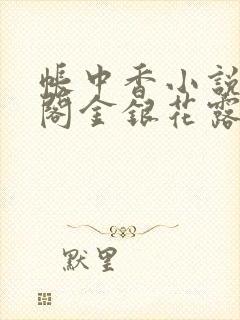 帳中香小說
閣金銀花露
默里